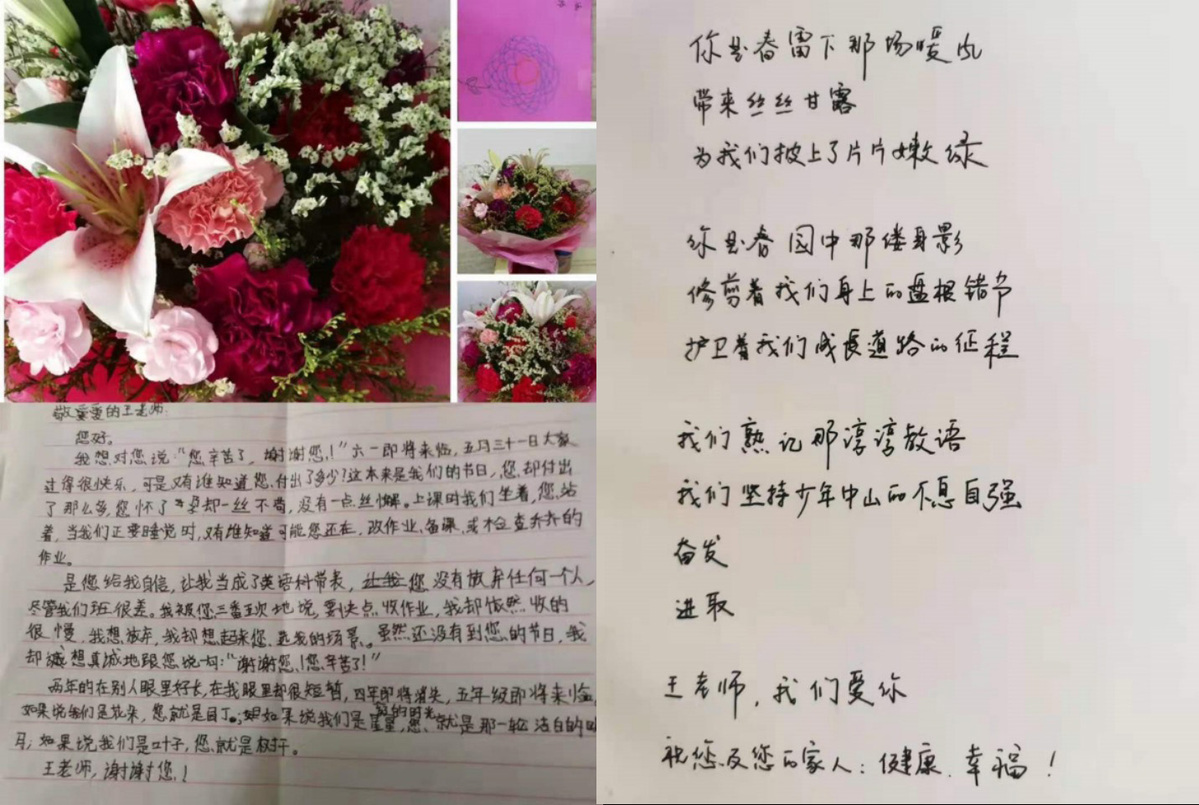 敬爱爱的王老师:
您好。
我想对您说:"您辛苦了,谢谢您!"六一即将来临,五月三十一日大家
过得很快乐,可是又有谁知道您付出了多少?这本来是我们的节日,您却付出
了那么多,您怀了 却一丝不苟,没有一点丝懈。上课时我们坐着,您站
着,当我们正要睡觉时,又有谁知道可能您还在,改作业、备课,或检查乔乔的
作业。
是您给我自信,让我当成了英语科带表,让我您没有放弃任何一个人,
尽管我们班很差。我被您三番五次地说,要快点收作业,我却依然收的
很慢,我想放弃,我却想起来您选我的场景。虽然还没有到您的节日,我
却诚想真诚地跟您说句:"谢谢您!您辛苦了!"
两年的在别人眼里好长,在我眼里却很短暂,四年即将消失,五年级即将来临,
的时光
如果说我们是花朵,您就是园丁;如果说我们是星星,您就是那一轮洁白的
;如果说我们是叶子,您就是枝干。
王老师,谢谢您!
你是春雷下那场暖风
带来丝丝甘露
为我们披上了片片嫩绿
你是春园中那偻身影
修剪着我们身上的盘根错节
护卫着我们成长道路的征程
我们熟记那淳淳教语
我们坚持少年中山的不息自强
奋发
进取
王老师,我们爱你
祝您及您的家人:健康、幸福!